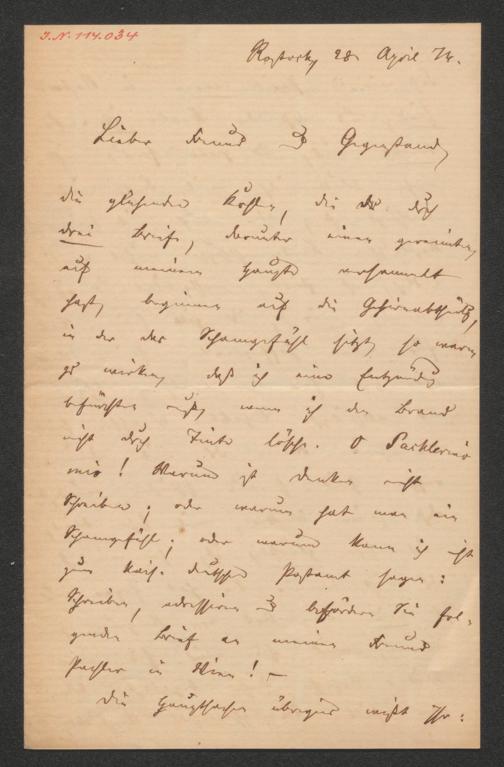 J.N. 114.034
Rostock, 28 April 74.
Lieber Freund & Gegenstand,
die glühenden Kohlen, die du durch
drei Briefe, darunter einen gereimten,
auf meinem Haupte versammelt
hast, beginnen auf die Gehirnabtheilg,
in der das Schamgefühl sitzt, so warm
zu wirken, daß ich eine Entzündg
befürchten muß, wenn ich den Brand
nicht durch Tinte lösche. O
mio! Warum ist denken nicht
Schreiben; oder warum hat man ein
Schamgefühl; oder warum kann ich nicht
zum kais. deutschen Postamt sagen:
Schreiben, adressiren & befördern Sie fol-
genden Brief an meinen Freund
Pachler in Wien! —
Die Hauptsachen übrigens wißt Ihr: